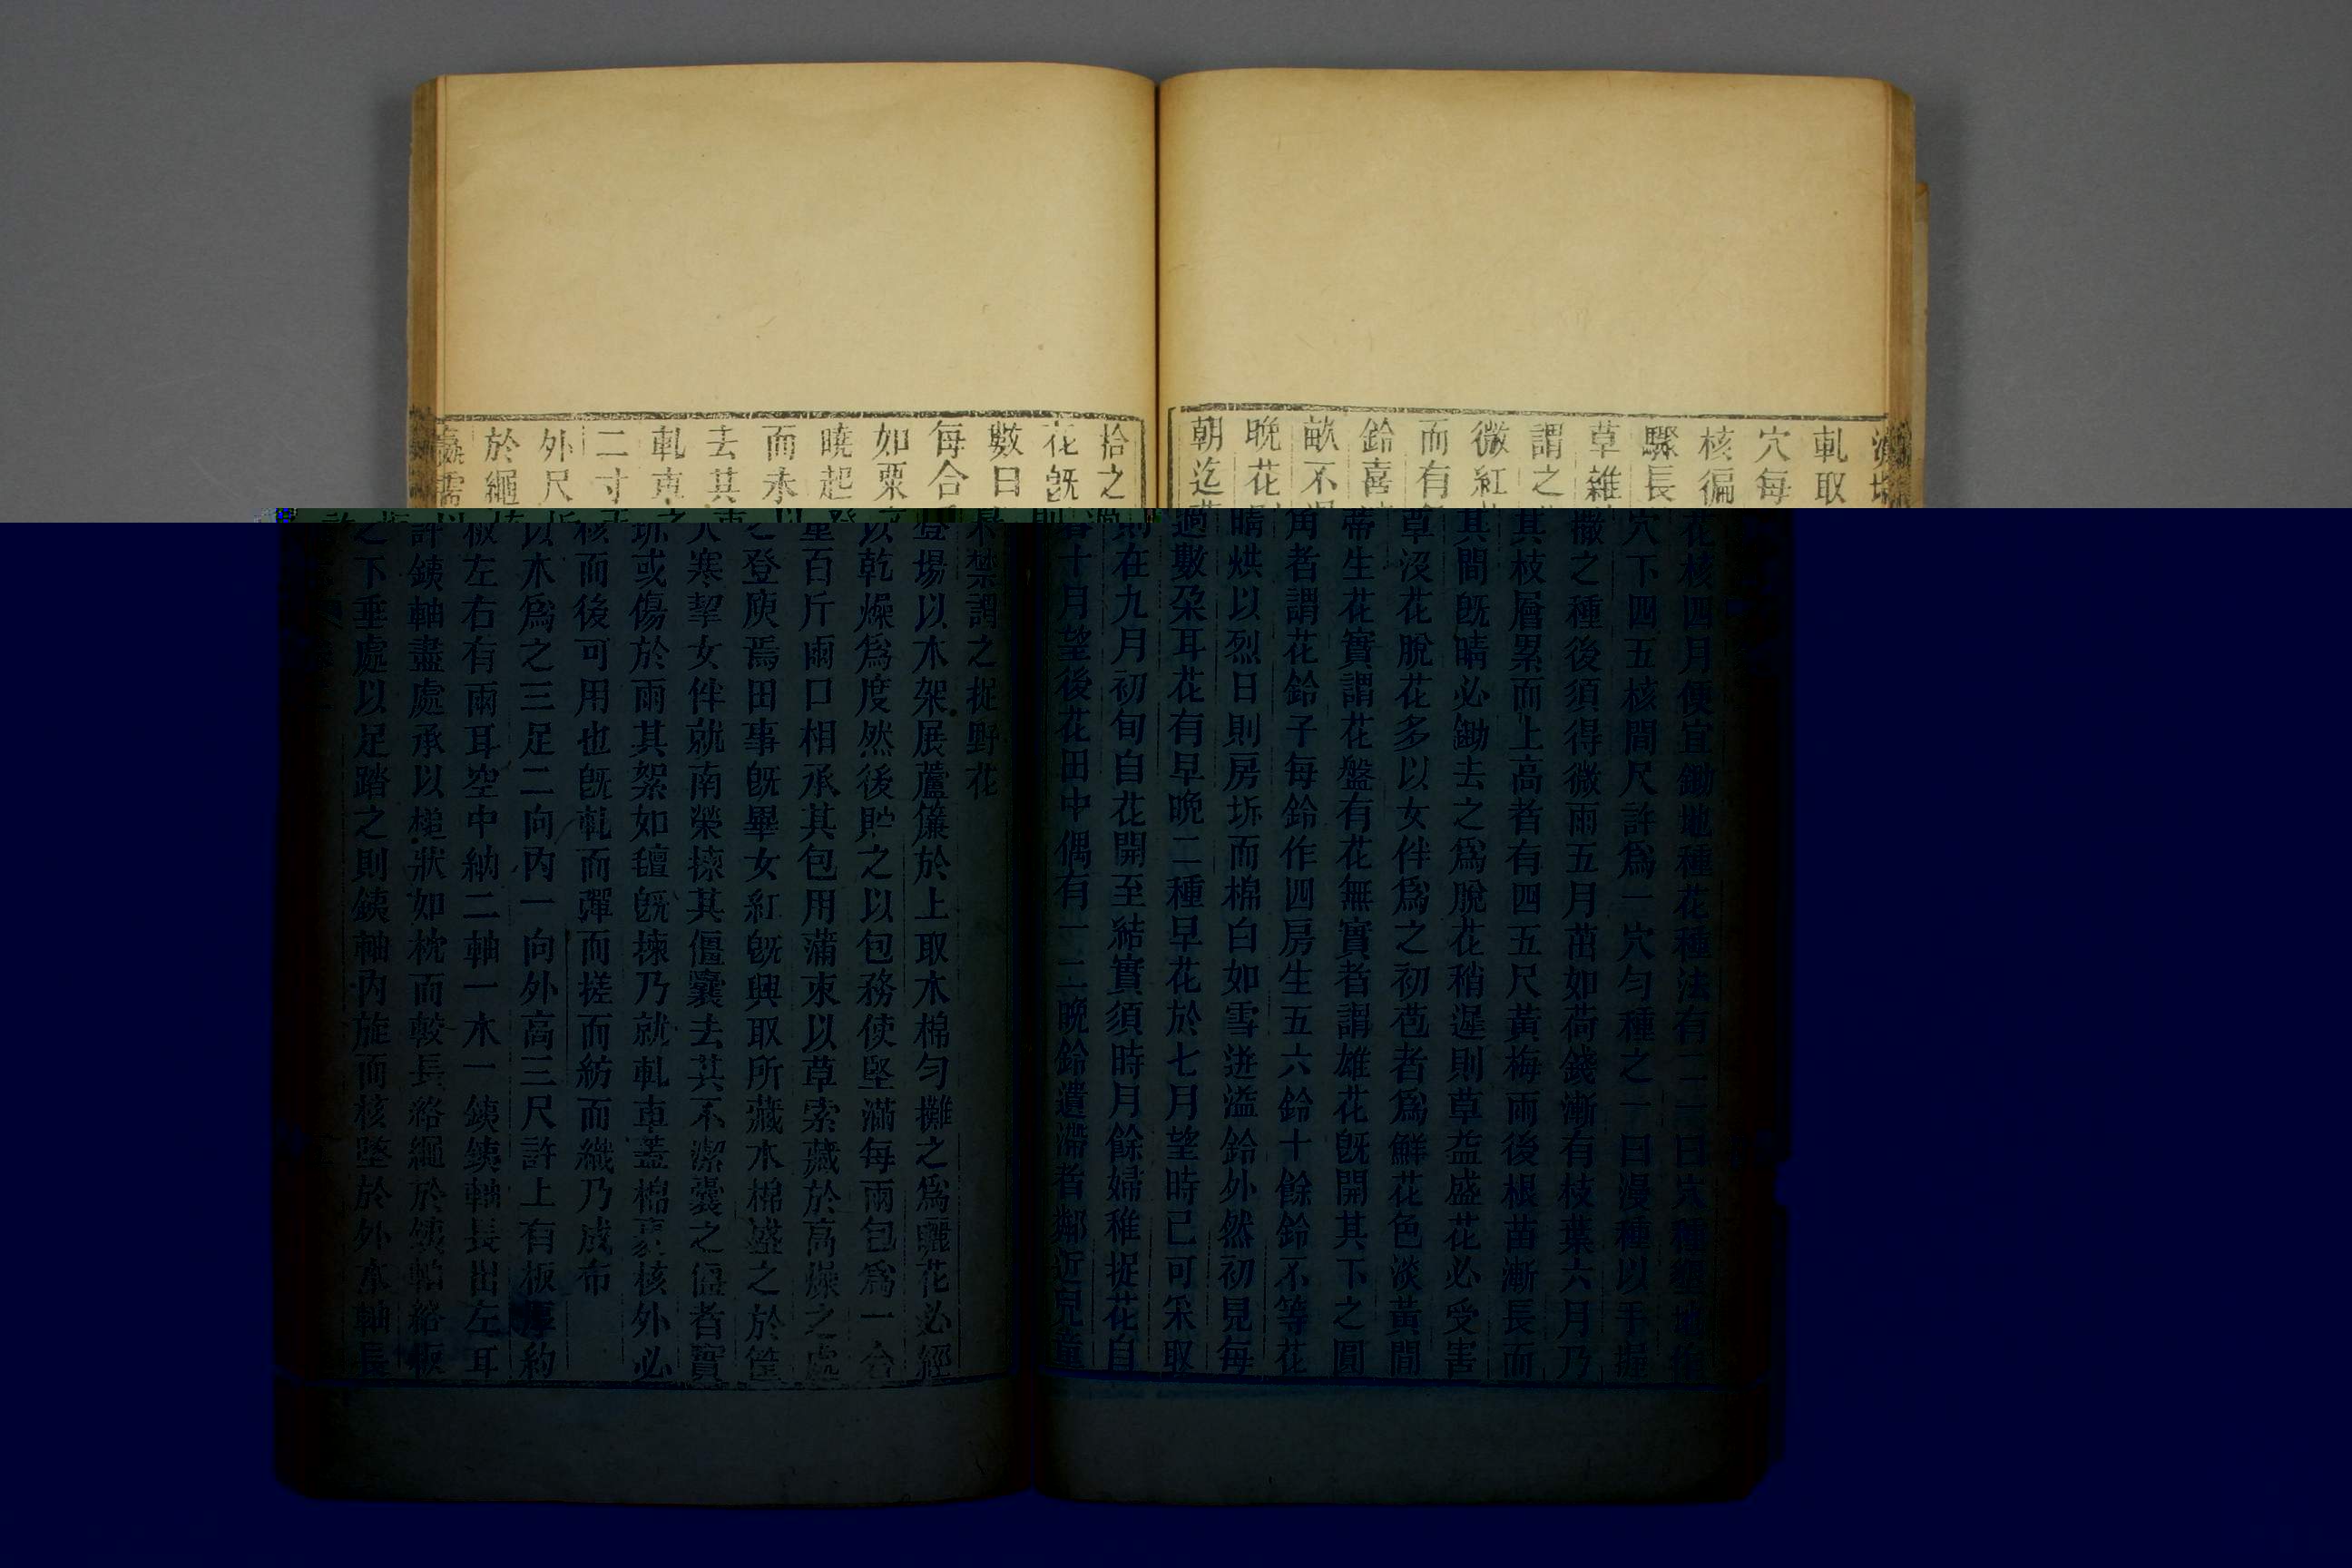 軋取花核四月便宜鋤地種花種法有二一曰穴種墾地作
穴每穴下四五核間尺許爲一穴勻種之一曰漫種以手握
核徧撒之種後須得微雨五月茁如荷錢漸有枝葉六月乃
驟長其枝層累而上高者有四五尺黃梅雨後根苗漸長而
草雜其間旣晴必鋤去之爲脫花稍遲則草益盛花必受害
謂之草沒花脫花多以女伴爲之初苞者爲鮮花色淡黃間
微紅蒂生花實謂花盤有花無實者謂雄花旣開其下之圓
而有角者謂花鈴子每鈴作四房生五六鈴十餘鈴不等花
鈴喜晴烘以烈日則房坼而棉白如雪迸溢鈴外然初見每
畝不過數朶耳花有早晚二種早花於七月望時已可采取
晚花則在九月初旬自花開至結實須時月餘婦稚捉花自
朝迄暮十月望後花田中偶有一二晚鈴遺滯者鄰近兒童
拾之不禁謂之捉野花
花旣登場以木架展蘆簾於上取木棉勻攤之爲曬花必經
數日以乾燥爲度然後貯之以包務使堅滿每兩包爲一合
每合重百斤兩口相承其包用蒲朿以草索藏於高燥之處
如粟之登庾焉田事旣畢女紅旣興取所藏木棉盛之於筐
曉起大寒挈女伴就南榮揀其僵囊去其不潔囊之僵者實
而未坼或傷於雨其絮如氊旣揀乃就軋車蓋棉裹核外必
去其核而後可用也旣軋而彈而搓而紡而織乃成布
軋車以木爲之三足二向內一向外高三尺許上有板厚約
二寸板左右有兩耳空中納二軸一木一銕銕軸長出左耳
外尺許銕軸盡處承以槌狀如枕而較長絡繩於銕軸絡板
於繩之下垂處以足踏之則銕軸內旋而核墜於外木軸長